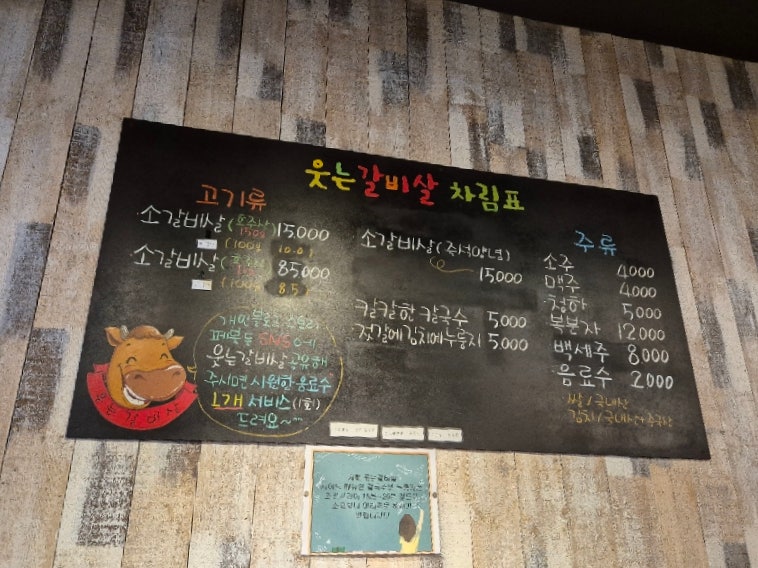 웃는갈비살 차림표
고기류
소갈비살(호주산 150g) 15,000
(100g 10.0)
소갈비살( 85000
(100g 8.5)
소갈비살(즉석양념)
15000
칼칼한 칼국수 5000
젓갈에김치에누룽지 5000
주류
소주 4000
맥주 4000
청하 5000
복분자 12000
백세주 8000
음료수 2000
쌀/국내산
김치/국내산+중국산
개인블로그 스토리
페북 등 SNS에
웃는갈비살 공유해
주시면 시원한 음료수
1개 서비스(1회)
드려요~
웃는갈비살